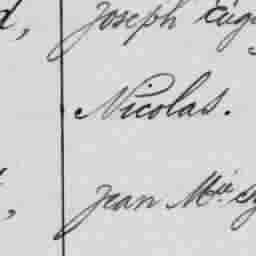 d, Joseph Eug
Nicolas.
, Jean Mie Sy